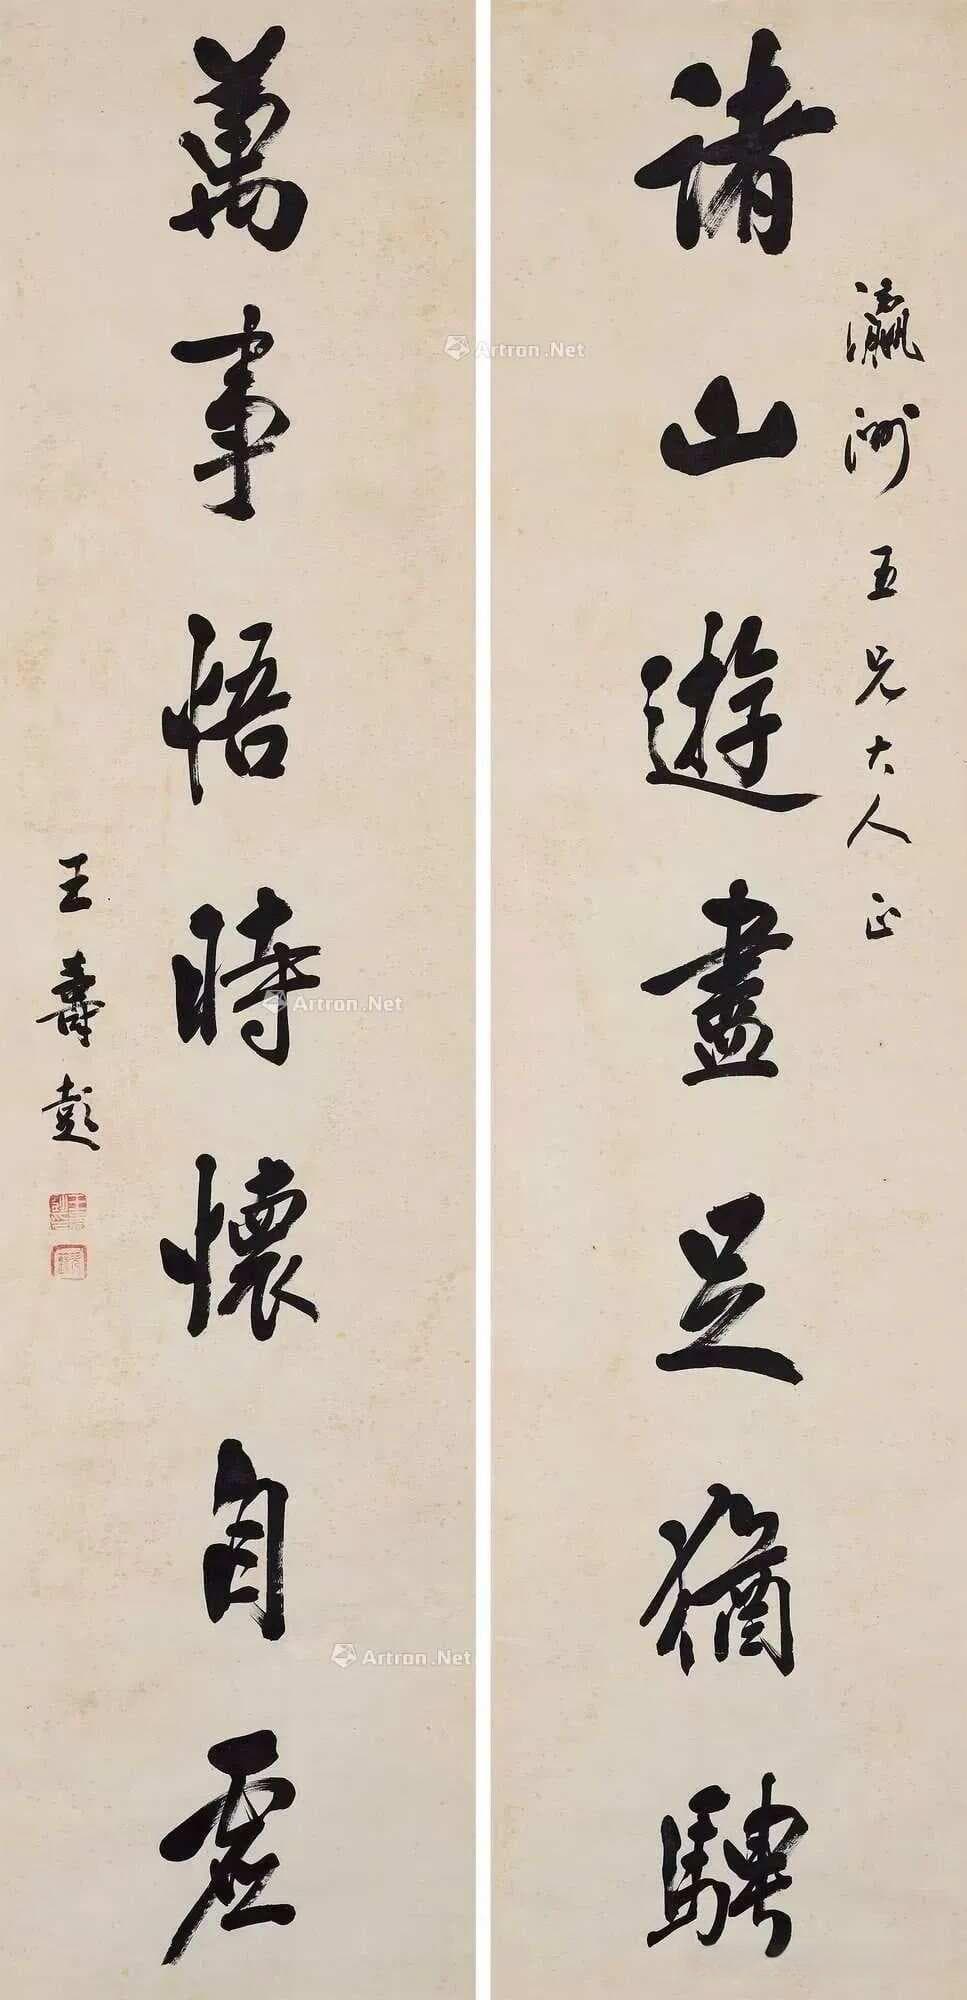 瀛洲五兄大人正
諸山遊盡足猶騁
萬事悟時懷自虛
王壽彭
Artron.Net
Artron.Net
Artron.Net